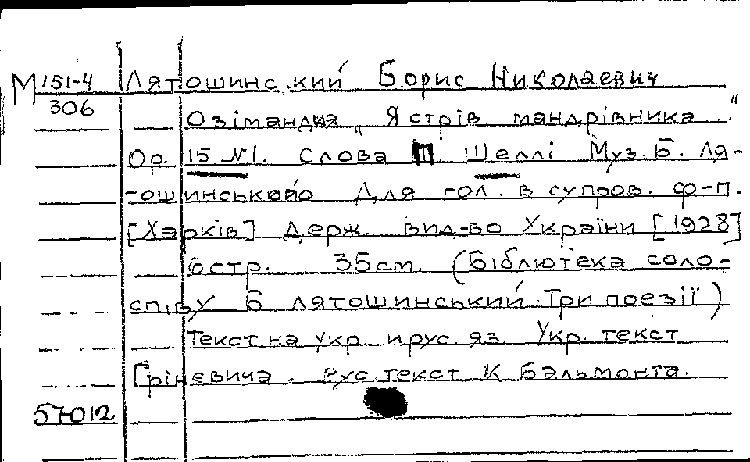 М 151-4 Лятошинский Борис Николаевич
306
Озімандиа „Я стрів мандрівника"
Ор. 15 №1. Слова П. Шеллі Муз. Б. Ля-
тошинського Для гол. в супров. ф-п.
[Харків] Держ. вид-во України [1928]
6 стр. 35 см. (Бібліотека соло-
співу Б Лятошинський. Три поезії)
Текст на укр. и рус. яз. Укр. текст
Гріневича. Рус. текст К Бальмонта.
57012